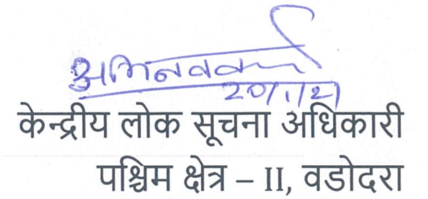 अभिनव वर्मा
20/1/21
केन्द्रीय लोक सूचना अधिकारी
पश्चिम क्षेत्र – II, वडोदरा